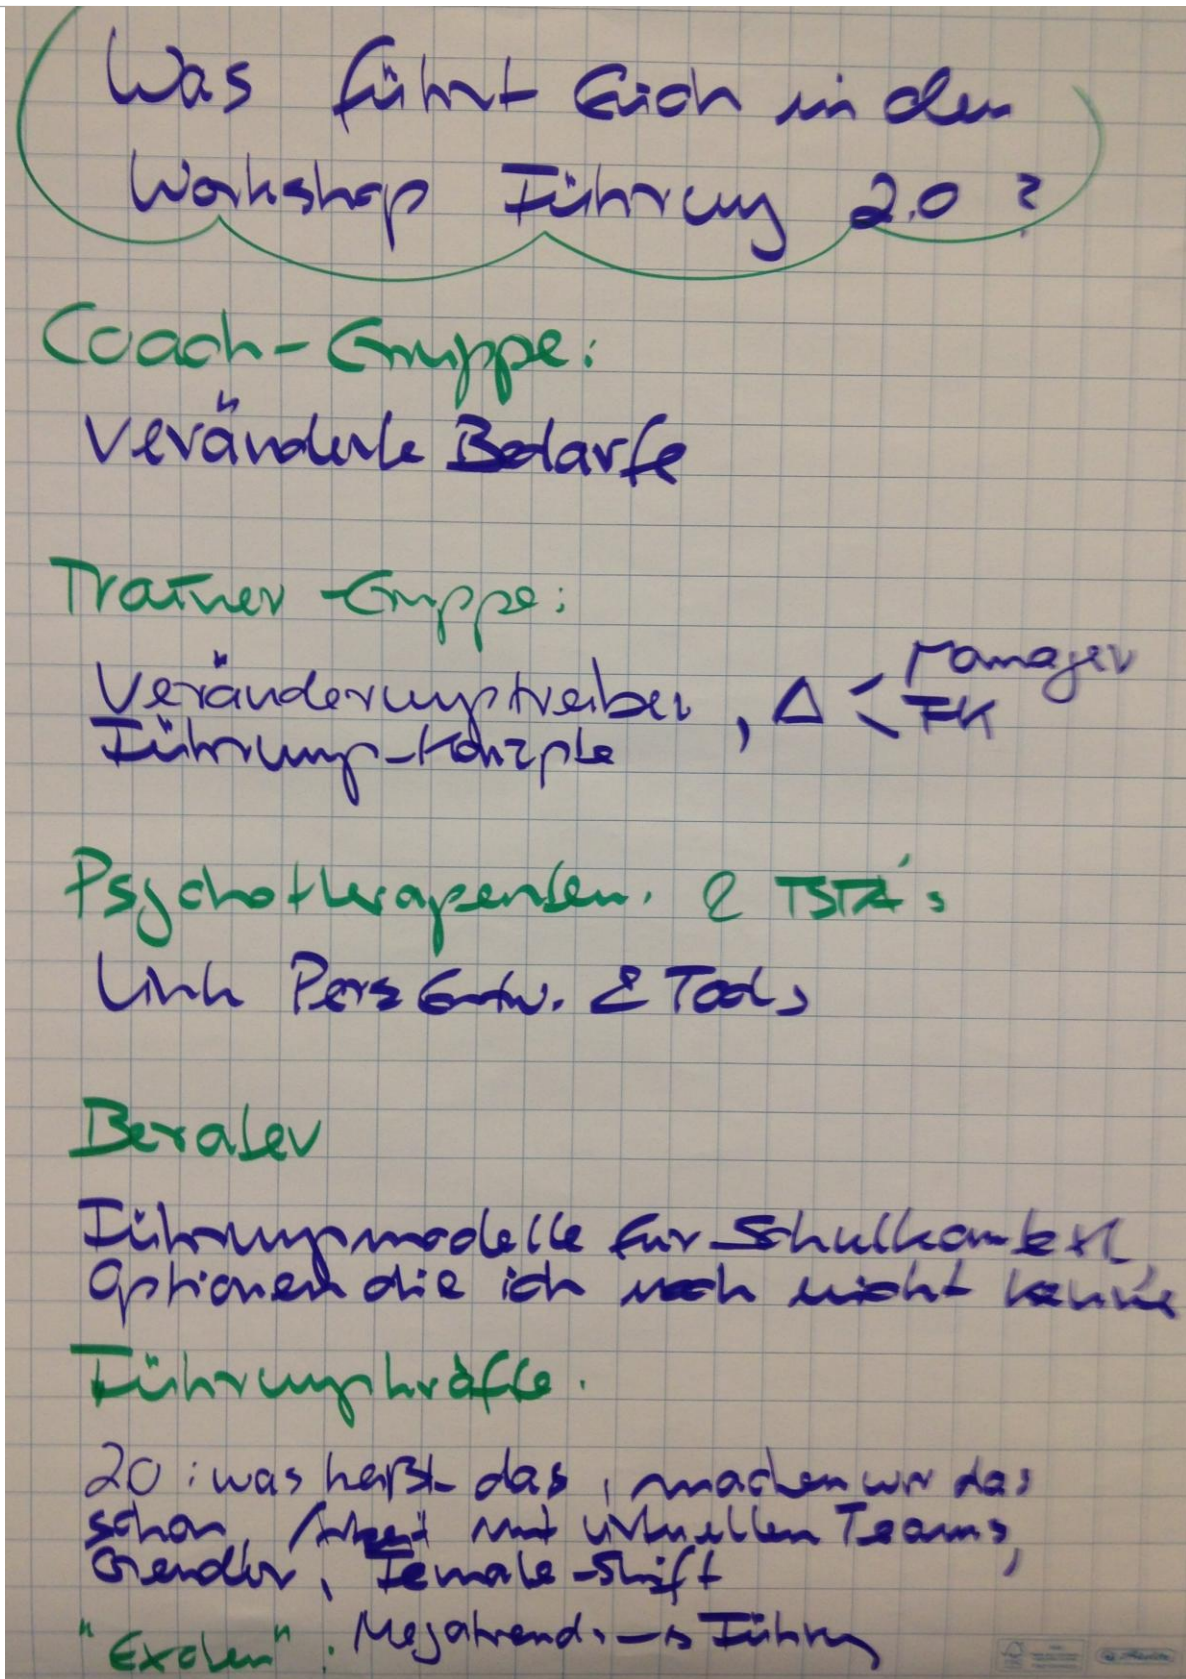 Was führt Euch in den
Workshop Führung 2.0 ?
Coach-Gruppe:
Veränderte Bedarfe
Trainer-Gruppe:
Veränderungstreiber , Δ < Manager
FK
Führungs-Konzepte
Psychotherapeuten. & TSTA's
Link Pers Entw. & Tools
Berater
Führungsmodelle für Schulkontext,
Optionen die ich noch nicht kenne
Führungskräfte.
20 : was heißt das , machen wir das
schon, Arbeit mit virtuellen Teams,
Gender, Female-Shift
"Exoten" : Megatrends → Führung